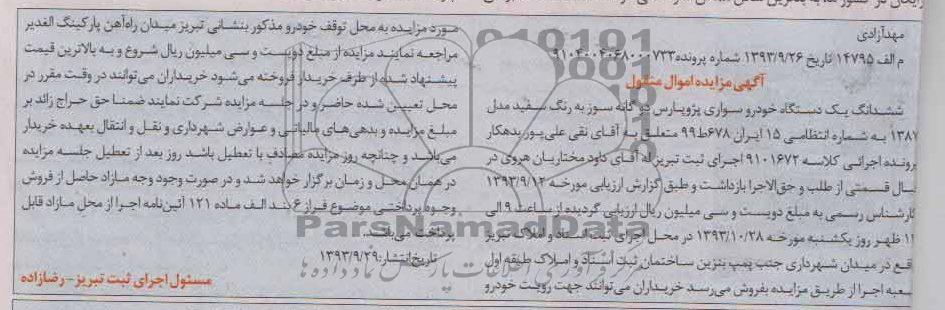 مهدآزادی
م الف ۱۴۷۹۵ تاریخ ۱۳۹۳/۹/۲۶ شماره پرونده ۹۱۰۴۰۰۴۰۶۸۰۰۰۷۳۳
آگهی مزایده اموال منقول
ششدانگ یک دستگاه خودرو سواری پژوپارس دوگانه سوز به رنگ سفید مدل
۱۳۸۷ به شماره انتظامی ۱۵ ایران ۶۷۸ط۹۹ متعلق به آقای نقی علی‌پور بدهکار
پرونده اجرائی کلاسه ۹۱۰۱۶۷۲ اجرای ثبت تبریز له آقای داود مختاریان هروی در
قبال قسمتی از طلب و حق‌الاجرا بازداشت و طبق گزارش ارزیابی مورخه ۱۳۹۳/۹/۱۲
کارشناس رسمی به مبلغ دویست و سی میلیون ریال ارزیابی گردیده از ساعت ۹ الی
۱۲ ظهر روز یکشنبه مورخه ۱۳۹۳/۱۰/۲۸ در محل اجرای ثبت اسناد و املاک تبریز
واقع در میدان شهرداری جنب پمپ بنزین ساختمان ثبت اسناد و املاک طبقه اول
شعبه اجرا از طریق مزایده بفروش می‌رسد خریداران می‌توانند جهت رویت خودرو
مورد مزایده به محل توقف خودرو مذکور بنشانی تبریز میدان راه‌آهن پارکینگ الغدیر
مراجعه نمایند مزایده از مبلغ دویست و سی میلیون ریال شروع و به بالاترین قیمت
پیشنهاد شده از طرف خریدار فروخته می‌شود خریداران می‌توانند در وقت مقرر در
محل تعیین شده حاضر و در جلسه مزایده شرکت نمایند ضمنا حق حراج زائد بر
مبلغ مزایده و بدهی‌های مالیاتی و عوارض شهرداری و نقل و انتقال بعهده خریدار
می‌باشد و چنانچه روز مزایده مصادف با تعطیل باشد روز بعد از تعطیل جلسه مزایده
در همان محل و زمان برگزار خواهد شد و در صورت وجود وجه مازاد حاصل از فروش
وجوه پرداختی موضوع فراز ۶ بند الف ماده ۱۲۱ آئین‌نامه اجرا از محل مازاد قابل
پرداخت می‌باشد.
تاریخ انتشار: ۱۳۹۳/۹/۲۹
مسئول اجرای ثبت تبریز - رضازاده
ParsNamadData